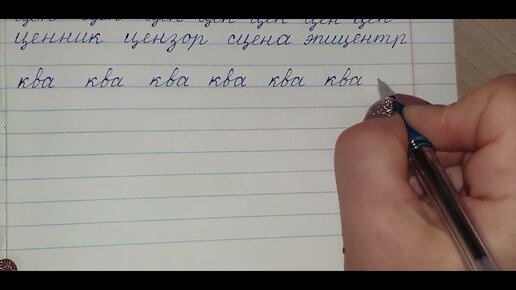 цен цен цен цен цен цен цен
ценник цензор сцена эпицентр
ква ква ква ква ква ква